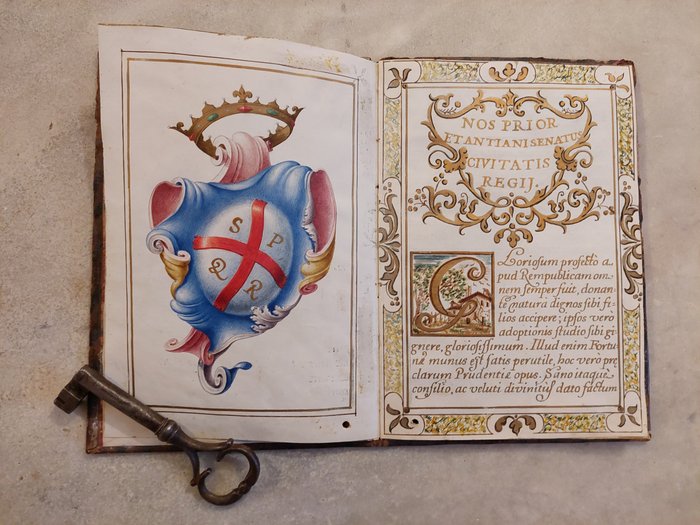 S P
Q R
NOS PRIOR
ET ANTIANI SENATUS
CIVITATIS
REGIJ.
GLoriosum profetto a,
pud Rempublicam om,
nem semper fuit, donan,
te natura dignos sibi fi,
lios accipere; ipsos vero
adoptionis studio sibi gi,
gnere, gloriosissimum. Illud enim Fortu,
næ munus est satis perutile, hoc verò præ,
clarum Prudentiæ opus. Sano itaque
consilio, ac veluti divinitus dato factum